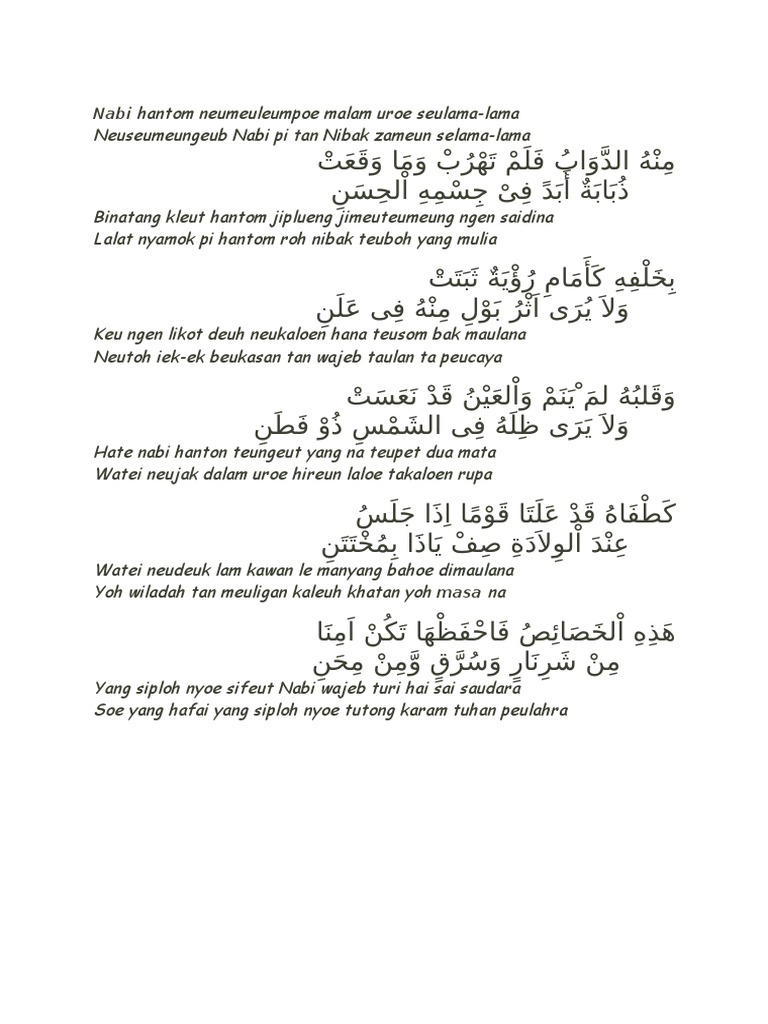 Nabi hantom neumeuleumpoe malam uroe seulama-lama
Neuseumeungeub Nabi pi tan Nibak zameun selama-lama
مِنْهُ الدَّوَابُ فَلَمْ تَهْرُبْ وَمَا وَقَعَتْ
ذُبَابَةٌ أَبَدً فِىْ جِسْمِهِ اْلحِسَنِ
Binatang kleut hantom jiplueng jimeuteumeung ngen saidina
Lalat nyamok pi hantom roh nibak teuboh yang mulia
بِخَلْفِهِ كَأَمَامِ رُؤْيَةٌ ثَبَتَتْ
وَلاَ يُرَى اَثْرُ بَوْلِ مِنْهُ فِى عَلَنِ
Keu ngen likot deuh neukaloen hana teusom bak maulana
Neutoh iek-ek beukasan tan wajeb taulan ta peucaya
وَقَلبُهُ لمَ ْيَنَمْ وَاْلعَيْنُ قَدْ نَعَسَتْ
وَلاَ يَرَى ظِلَهُ فِى الشَمْسِ ذُوْ فَطَنِ
Hate nabi hanton teungeut yang na teupet dua mata
Watei neujak dalam uroe hireun laloe takaloen rupa
كَطْفَاهُ قَدْ عَلَتَا قَوْمًا اِذَا جَلَسُ
عِنْدَ اْلوِلاَدَةِ صِفْ يَاذَا بِمُخْتَتَنِ
Watei neudeuk lam kawan le manyang bahoe dimaulana
Yoh wiladah tan meuligan kaleuh khatan yoh masa na
هَذِهِ اْلخَصَائِصُ فَاحْفَظْهَا تَكُنْ اَمِنَا
مِنْ شَرِنَارٍ وَسُرَّقٍ وَّمِنْ مِحَنِ
Yang siploh nyoe sifeut Nabi wajeb turi hai sai saudara
Soe yang hafai yang siploh nyoe tutong karam tuhan peulahra